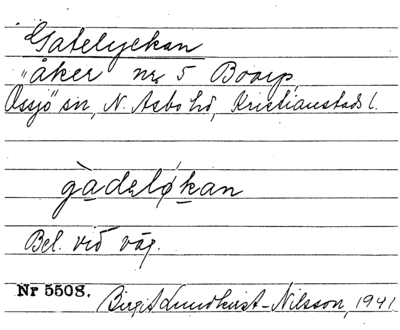 Gatelyckan
"åker nr 5 Boarp,
Össjö" sn, N. Åsbo hd, Kristianstads l.
gàdeløkan
Bel. vid väg.
Nr 5508. Birgit Lundkvist-Nilsson, 1941.